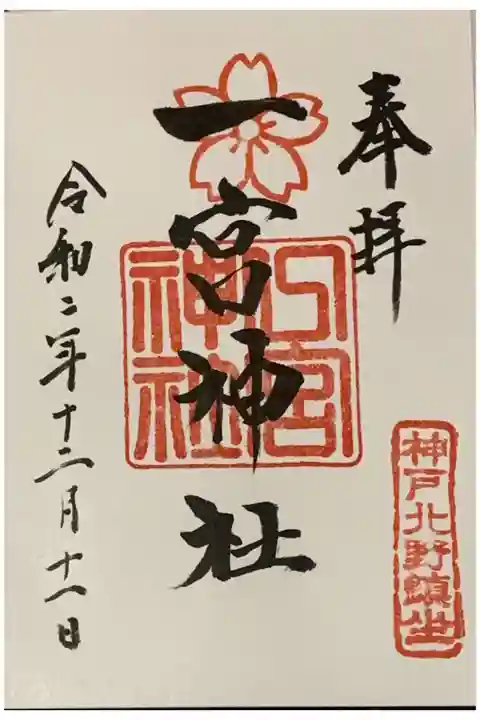 奉拝
神戸北野鎮坐
一宮神社
神社
令和二年十二月十一日